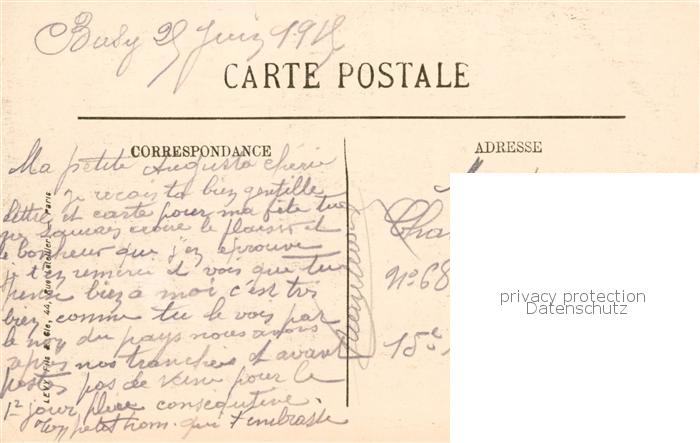 Busy 25 Juin 1915
CARTE POSTALE
CORRESPONDANCE
ADRESSE
Ma petite Augusta chérie
Je recois ta bien gentille
lettre et carte pour ma fête tu
ne saurais croire le plaisir et
le bonheur que j'ez éprouve
je t'ez remerci et vois que tu
pense biez a moi c'est tres
biez comme tu le vois par
le noz du pays nous avons
après nos tranchées et avant
postes pas de veine pour le
1er jour pluie consequtive.
Toz petit hom. qui t'embrasse
LEVY Fils & Cie, 44, Rue Letellier - Paris
N° 68
15e
privacy protection
Datenschutz